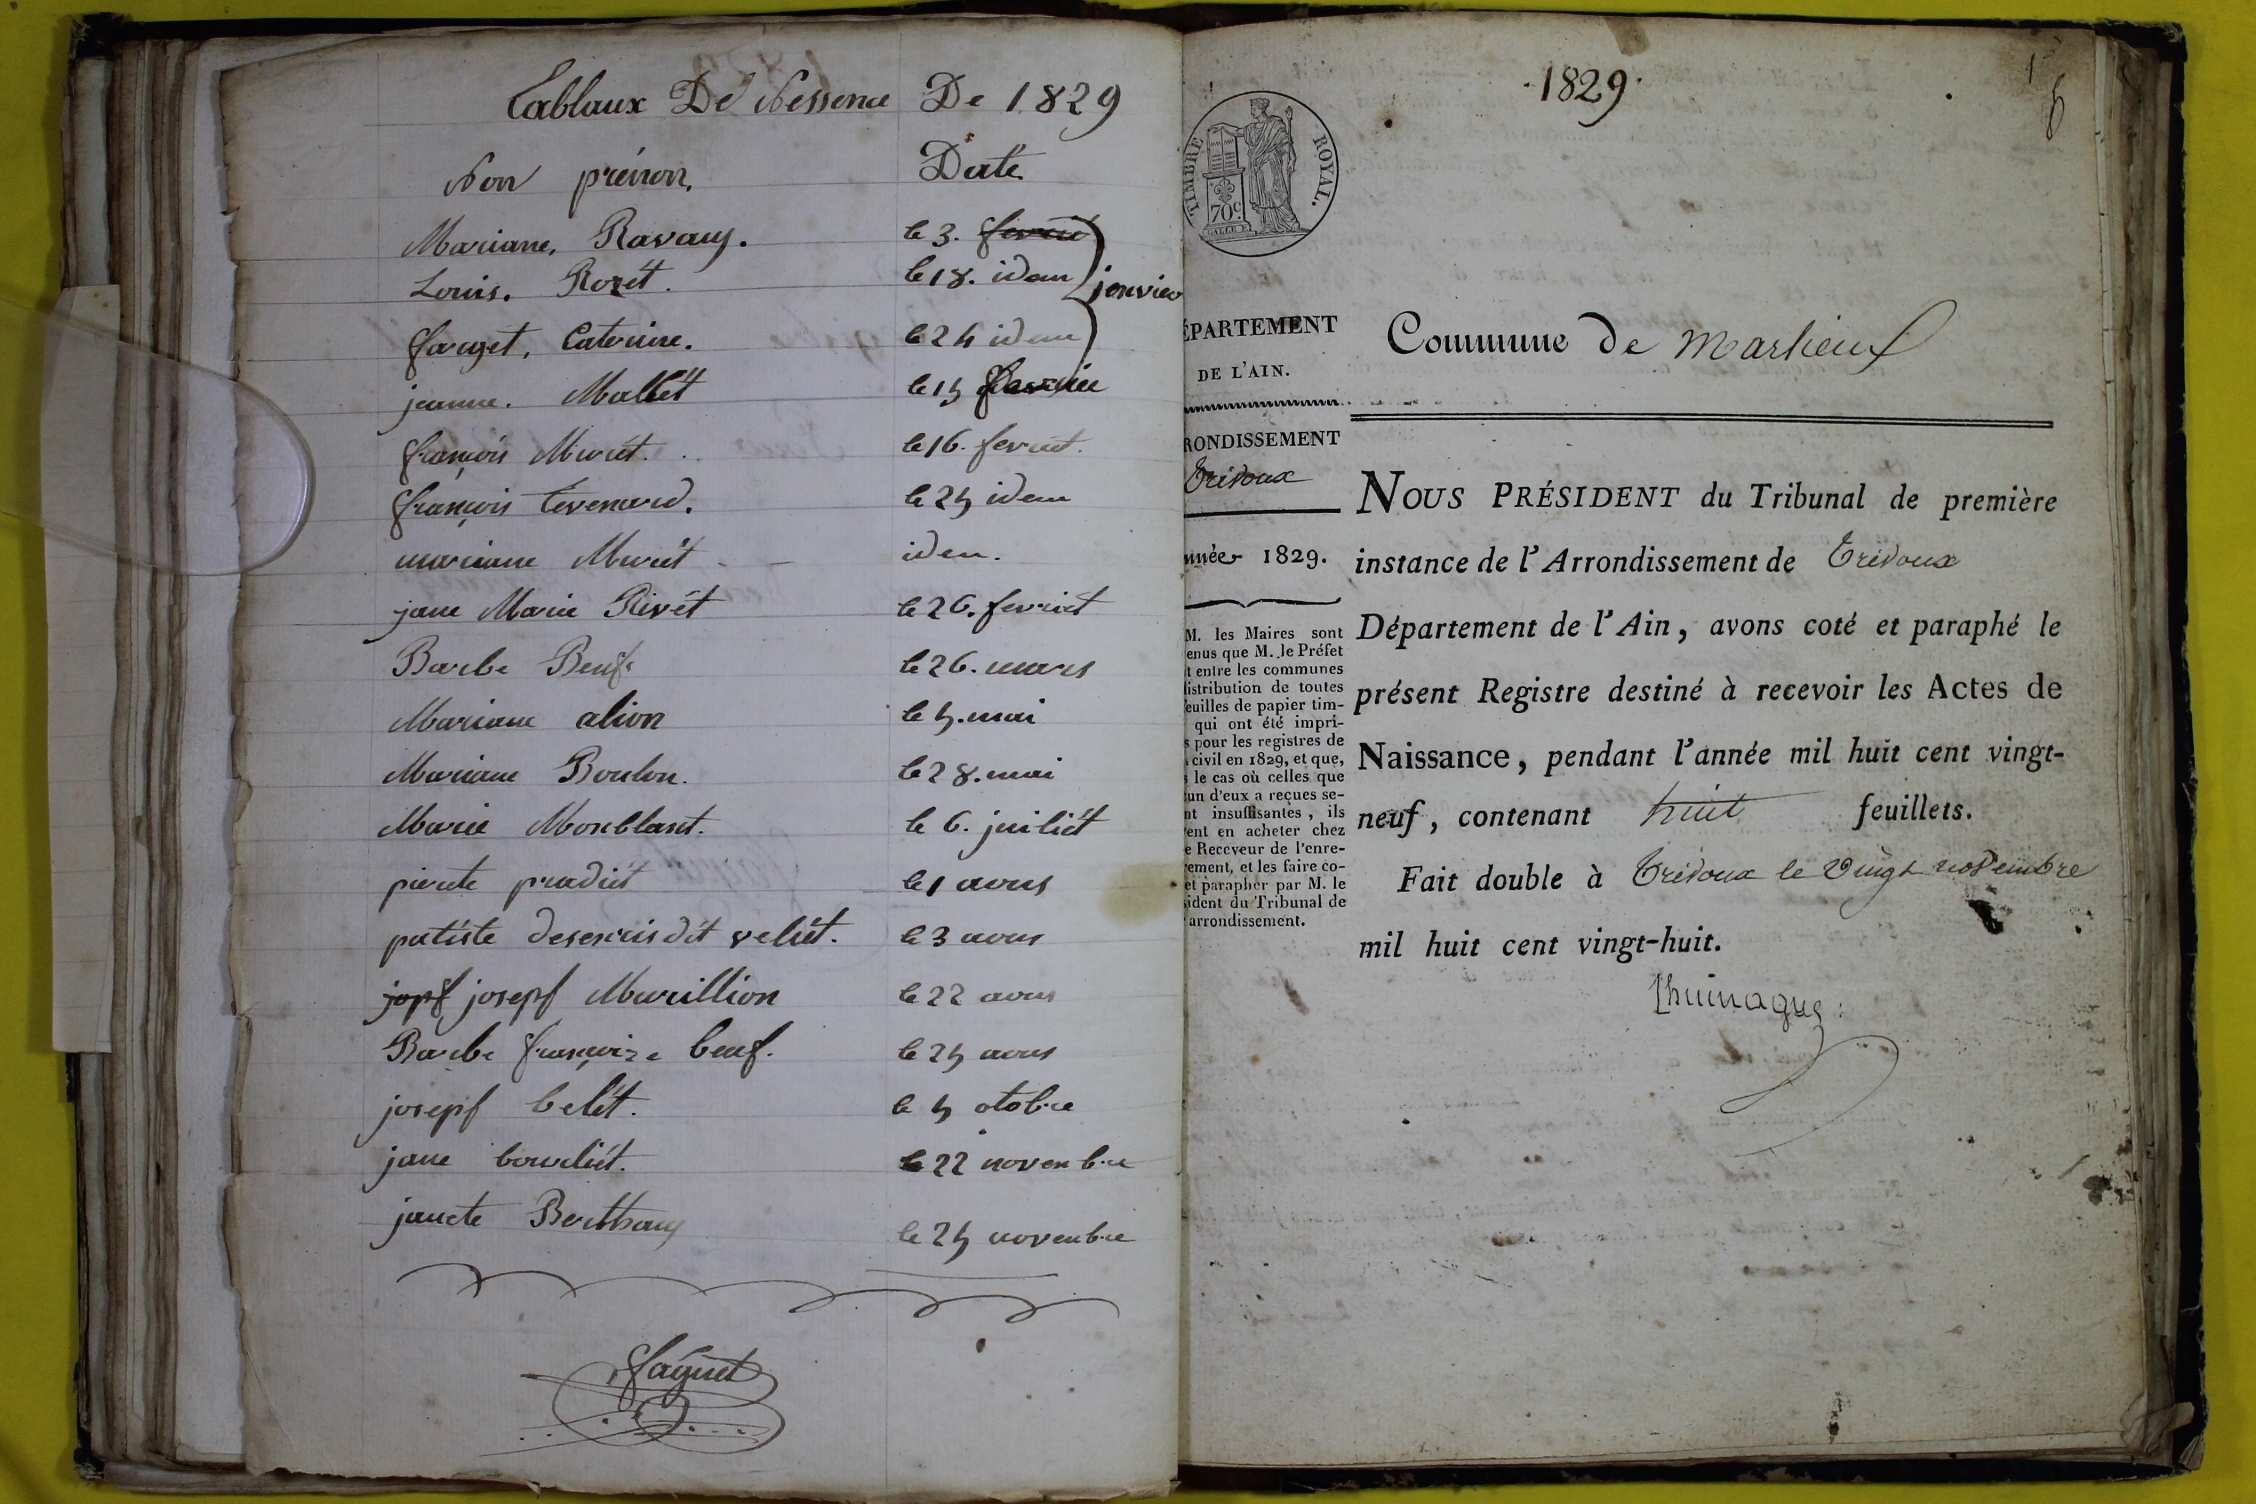 Tablaux De Nessence De 1829
Non prénon. Date
Mariane, Ravaux. le 3.
Louis. Rozét. le 18. idem
janvier
farget, Caterine. le 24 idem
jeanne. Mallét le 15
françois Muriét. le 16. fevriét.
françois Tevenard. le 25 idem
mariane Muriét idem.
jane Marie Rivét le 26. fevriét
Barbe Beuf. le 26. mars
Mariane alion le 5. mai
Mariane Boulon. le 28. mai
Marie Monblant. le 6. juiliét
pierete pradiét le 1 aous
patiste dit veliét. le 3 aous
jopf josepf Murillion le 22 aous
Barbe françoize beuf. le 25 aous
josepf belét. le 5 otobre
jane bourliét. le 22 novenbre
janete Berthaux le 25 novenbre
faguet
1829.
1
TIMBRE ROYAL.
70c
ÉPARTEMENT
DE L'AIN.
RONDISSEMENT
Trévoux
nnée 1829.
M. les Maires sont
enus que M. le Préfet
t entre les communes
distribution de toutes
feuilles de papier tim-
qui ont été impri-
s pour les registres de
civil en 1829, et que,
s le cas où celles que
cun d'eux a reçues se-
nt insuffisantes, ils
vent en acheter chez
e Receveur de l'enre-
rement, et les faire co-
et parapher par M. le
sident du Tribunal de
arrondissement.
Commune de Marlieux
NOUS PRÉSIDENT du Tribunal de première
instance de l'Arrondissement de Trévoux
Département de l'Ain, avons coté et paraphé le
présent Registre destiné à recevoir les Actes de
Naissance, pendant l'année mil huit cent vingt-
neuf, contenant huit feuillets.
Fait double à Trévoux le vingt novembre
mil huit cent vingt-huit.